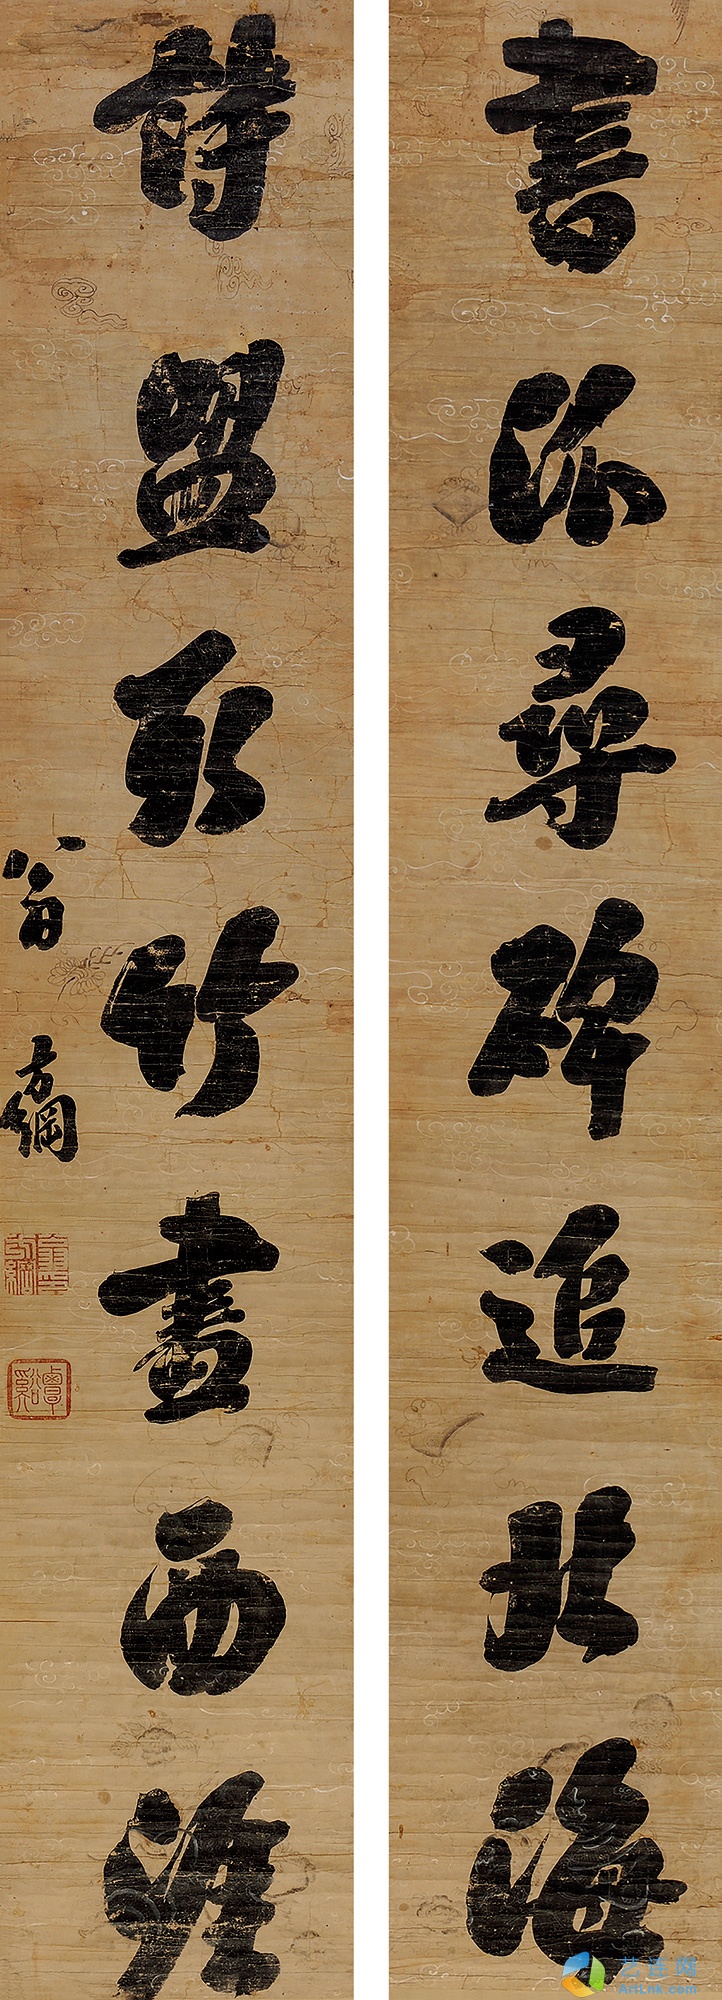 書派尋碑追北海
詩盟取竹畫西涯
翁方綱
覃谿
ArtLnk.com